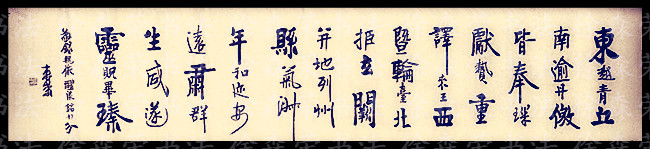 東越青丘
南逾丹徼
皆奉琛
獻贄重
譯來王西
暨輪臺北
拒玄闕
并地列州
縣氣淑
年和迩安
遠肅群
生咸遂
靈貺畢臻